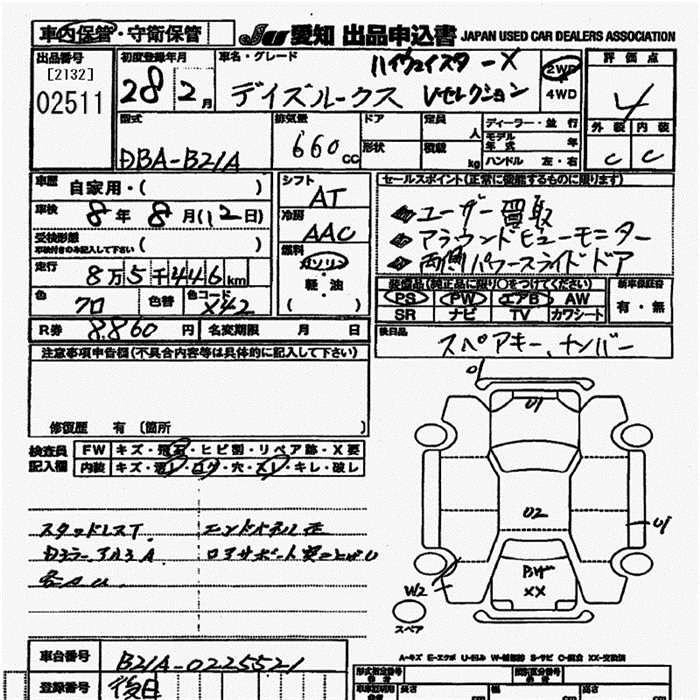 車内保管・守衛保管
JU 愛知 出品申込書 JAPAN USED CAR DEALERS ASSOCIATION
出品番号
[2132]
02511
初度登録年月
28年2月
車名・グレード
ハイウェイスターX
デイズルークス Vセレクション
2WD
4WD
評価点
4
外装 内装
C C
型式
DBA-B21A
排気量
660cc
ドア
形状
定員 人
積載 kg
ディーラー・並行
モデル年式 年
ハンドル 左・右
車歴 自家用・( )
車検 8年8月(12日)
受検形態
車検付きのみ記入して下さい
走行 8万5千446km
色 クロ 色替 色コード X42
シフト AT
冷房 AAC
燃料 ガソリン
・軽・油
( )
セールスポイント(正常に機能するものに限ります)
ユーザー買取
アラウンドビューモニター
両側パワースライドドア
装備品(純正品に限り○をつけてください)
PS PW エアB AW
SR ナビ TV カワシート
新車保証書
有・無
R券 8.860円 名変期限 月 日
後日品
スペアキー、ナンバー
注意事項申告欄(不具合内容等は具体的に記入して下さい)
修復歴 有 (箇所 )
検査員記入欄
FW キズ・飛石・ヒビ割・リペア跡・X要
内装 キズ・汚レ・コゲ・穴・スレ・キレ・破レ
スタッドレスT.
01
01
02
01
W2
XX
スペア
A-キズ E-エクボ U-凹み W-補修跡 S-サビ C-腐食 XX-交換済
車台番号 B21A-0225521
登録番号 後日